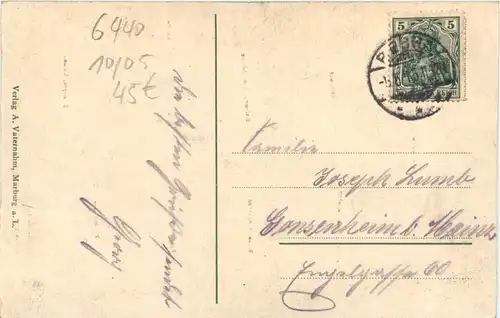 6440
10/05
45€
5 5
Die besten Grüße sendet
Georg
Familie
Joseph Lumb
Gonsenheim b. Mainz
Engelgasse 60
Verlag A. Vaternahm, Marburg a. L.